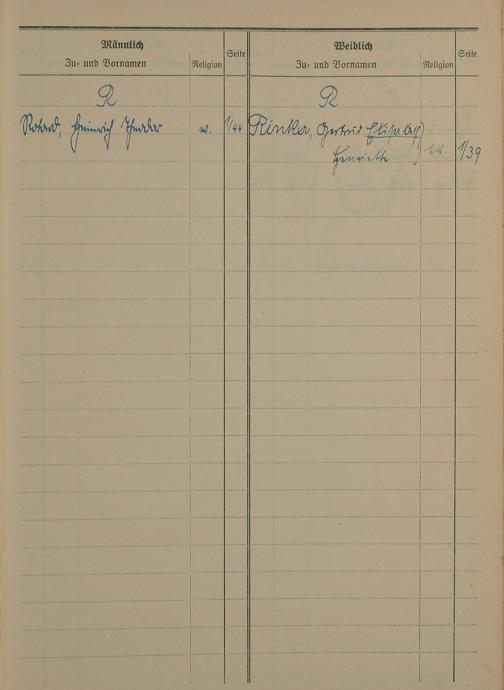 Männlich
Zu- und Vornamen
Religion
Seite
R
Heinrich Theodor
1/44
Weiblich
Zu- und Vornamen
Religion
Seite
R
Rinker, Gertrud Elisabeth
Henriette
1/39